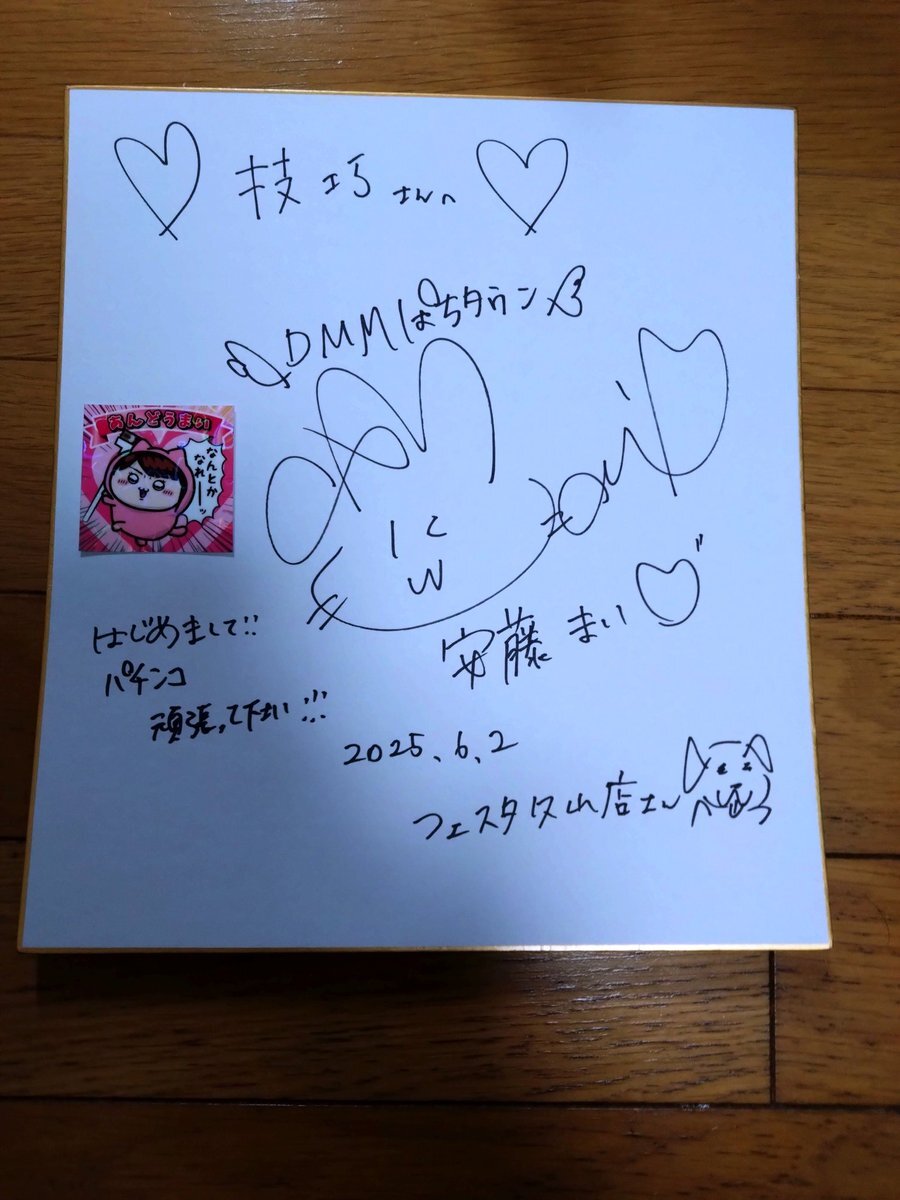 技巧さんへ
DMMぱちタウン
あんどうまい
なんとか
なれーーッ
安藤まい
はじめまして!!
パチンコ
頑張って下さい!!!
2025.6.2
フェスタ久山店さん